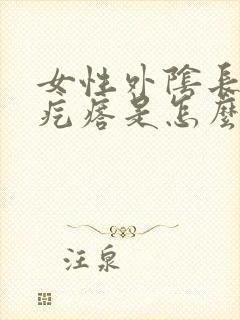 女性外陰長
疙瘩是怎麼
汪泉